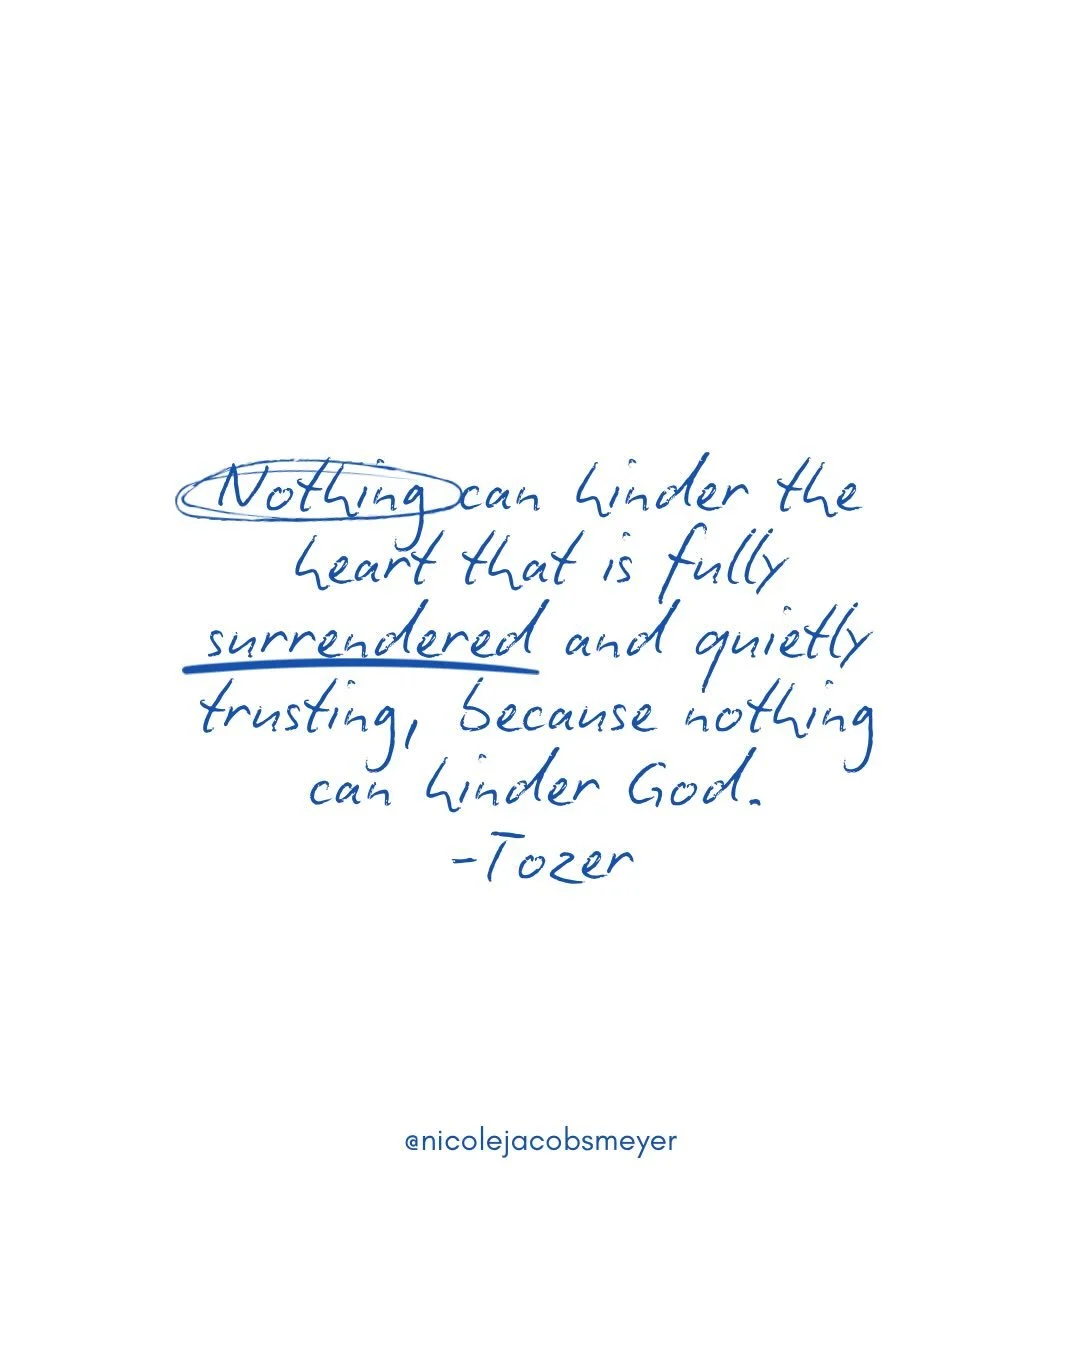 Nothing can hinder the
heart that is fully
surrendered and quietly
trusting, because nothing
can hinder God.
-Tozer
@nicolejacobsmeyer